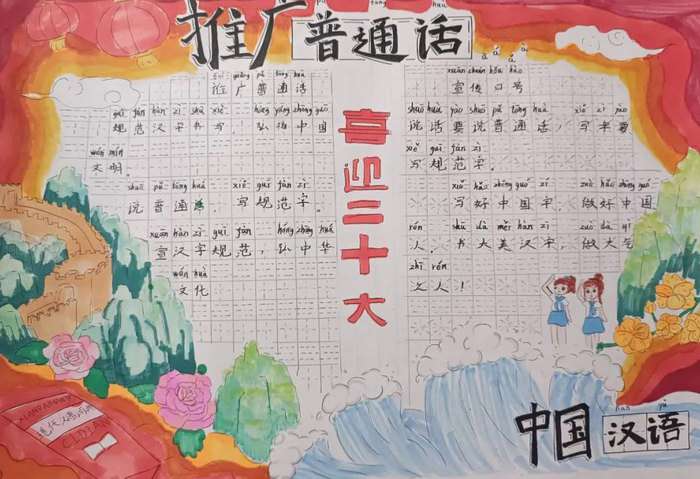 推广普通话
tuī guǎng pǔ tōng huà
推广普通话
guī fàn hàn zì shū xiě hóng yáng zhōng guó
规范汉字书写，弘扬中国
wén míng
文明。
shuō pǔ tōng huà xiě guī fàn zì
说普通话，写规范字。
xuān hàn zì guī fàn hóng zhōng huá
宣汉字规范，弘中华
wén huà
文化
喜迎二十大
xuān chuán kǒu hào
宣传口号
shuō huà yào shuō pǔ tōng huà xiě zì yào
说话要说普通话，写字要
xiě guī fàn zì
写规范字。
xiě hǎo zhōng guó zì zuò hǎo zhōng guó
写好中国字，做好中国
rén shū dà měi hàn zì zuò dà qì
人，书大美汉字，做大气
zhī rén
之人！
现代汉语词典
CIDIAN
hàn yǔ
中国汉语